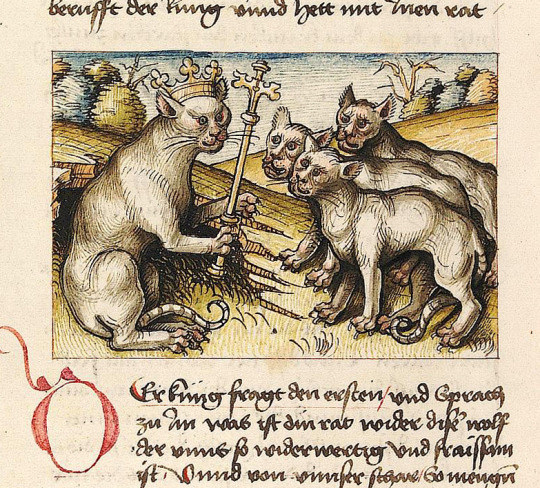 berufft der küng vnnd hett mit Inen rat
DEr küng fragt den ersten / vnd Sprach
zu Im was ist din rat wider dise wolf
der vnns so widerwertig vnd fraissam
ist / Vnnd von vnnser schare / So mengn